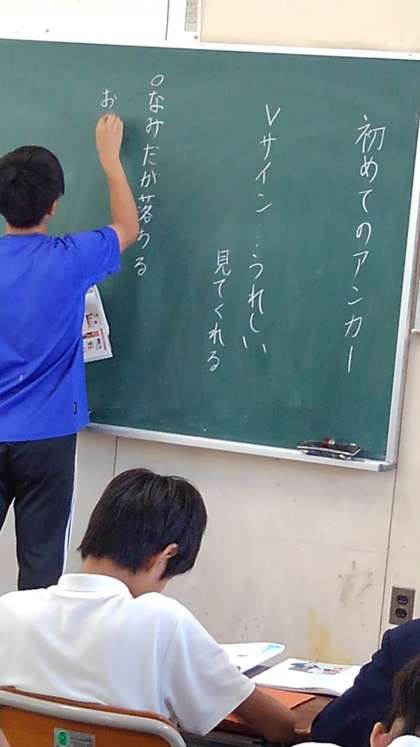 初めてのアンカー
Vサイン…うれしい
見てくれる
○なみだが落ちる
お